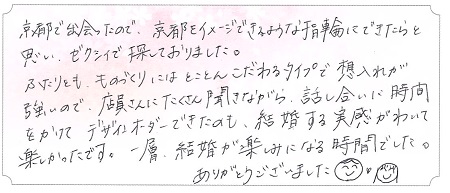 京都で出会ったので、京都をイメージできるような指輪にできたらと
思い、ゼクシィで探しておりました。
ふたりとも、ものづくりにはとことんこだわるタイプで想入れが
強いので、店員さんにたくさん聞きながら、話し合いに時間
をかけてデザインオーダーできたのも、結婚する実感がわいて
楽しかったです。一層、結婚が楽しみになる時間でした。
ありがとうございました